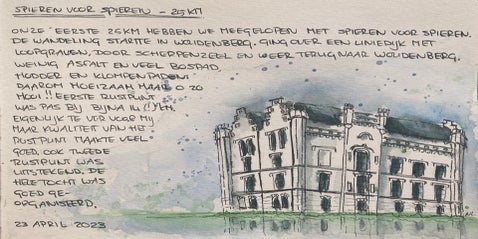 SPIEREN VOOR SPIEREN - 25 KM
ONZE EERSTE 25 KM HEBBEN WE MEEGELOPEN MET SPIEREN VOOR SPIEREN.
DE WANDELING STARTTE IN WOUDENBERG. GING OVER EEN LINIEDIJK MET
LOOPGRAVEN, DOOR SCHERPENZEEL EN WEER TERUG NAAR WOUDENBERG.
WEINIG ASFALT EN VEEL BOSPAD,
MODDER EN KLOMPENPADEN!
DAAROM MOEIZAAM MAAR O ZO
MOOI!! EERSTE RUSTPUNT
WAS PAS BIJ BIJNA 14(!) KM.
EIGENLIJK TE VER VOOR MIJ
MAAR KWALITEIT VAN HET
RUSTPUNT MAAKTE VEEL
GOED. OOK TWEEDE
RUSTPUNT WAS
UITSTEKEND. DE
HELE TOCHT WAS
GOED GE-
ORGANISEERD.
23 APRIL 2023